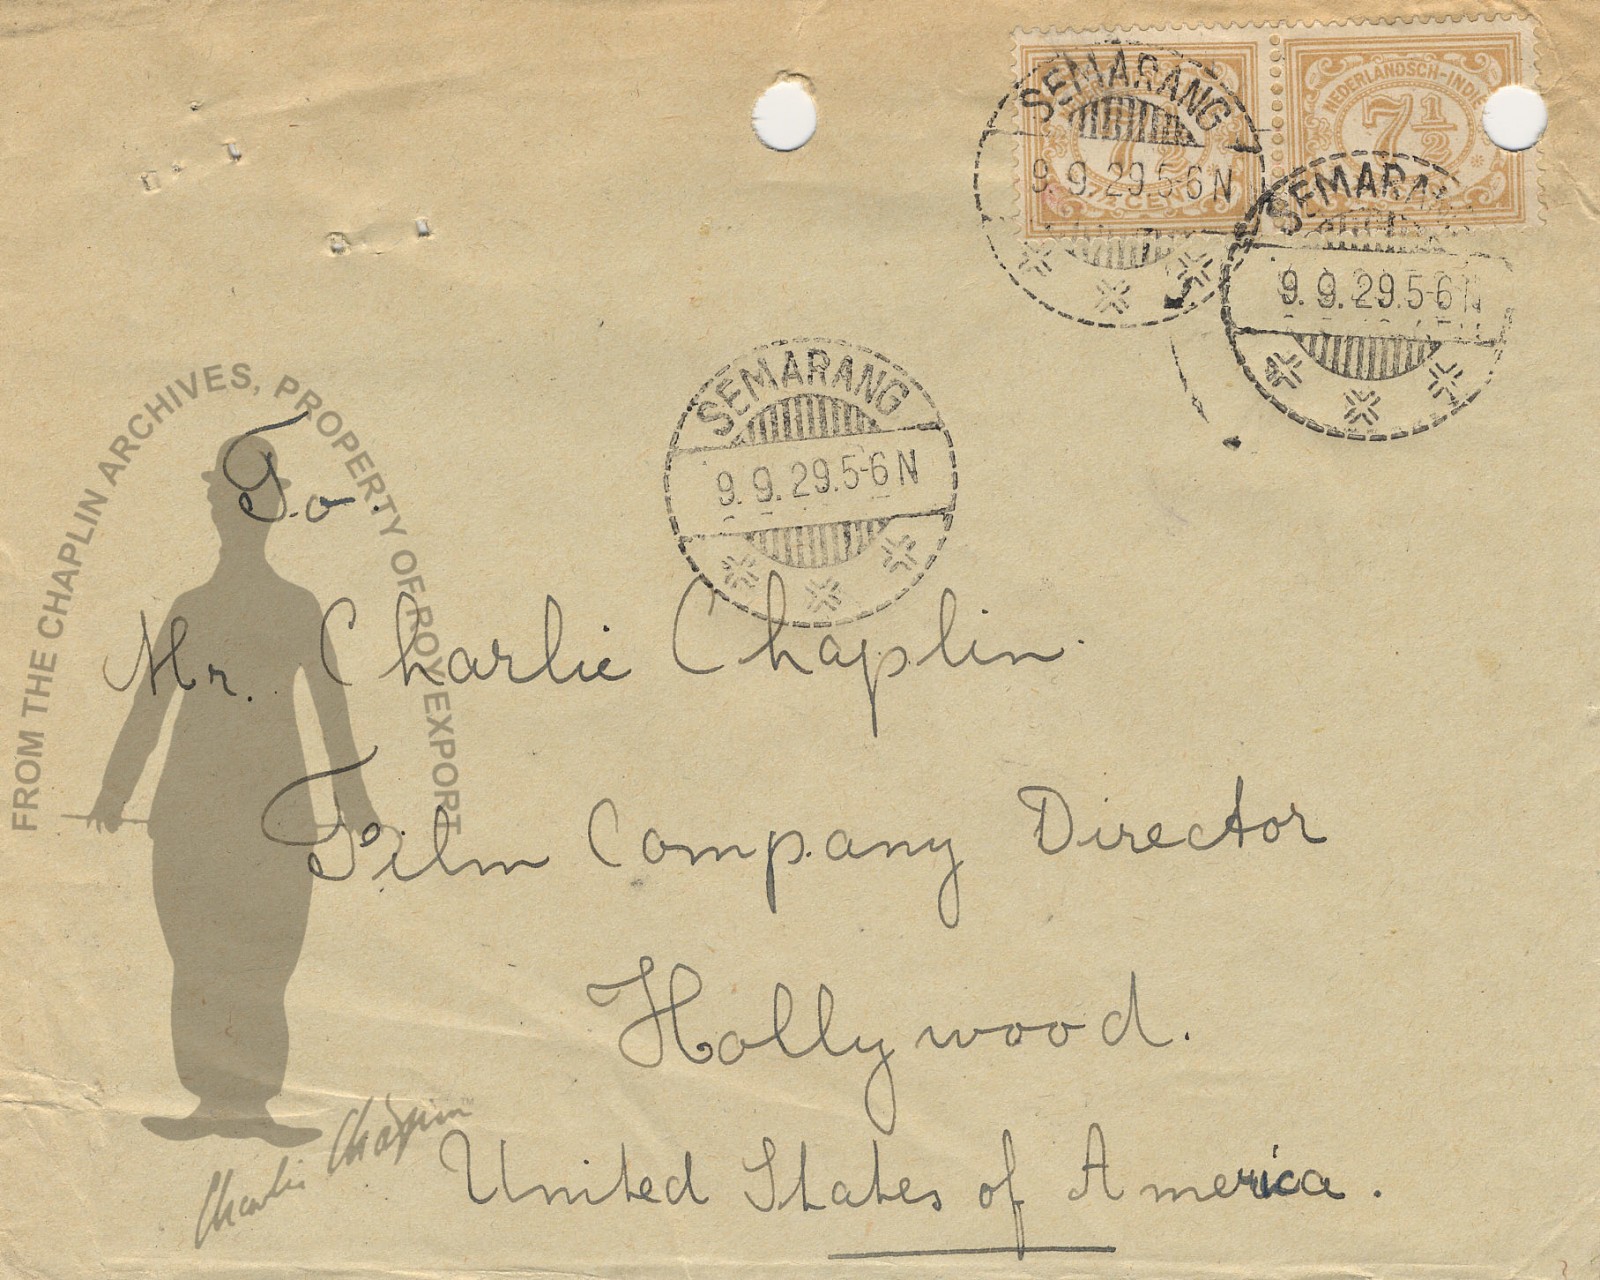 NEDERLANDSCH-INDIË
7 1/2
7 1/2
CENT
SEMARANG
9.9.29.5-6N
SEMARANG
9.9.29.5-6N
SEMARANG
9.9.29.5-6N
FROM THE CHAPLIN ARCHIVES, PROPERTY OF ROY EXPORT
To.
Mr. Charlie Chaplin.
Film Company Director
Hollywood.
United States of America.
Charlie Chaplin